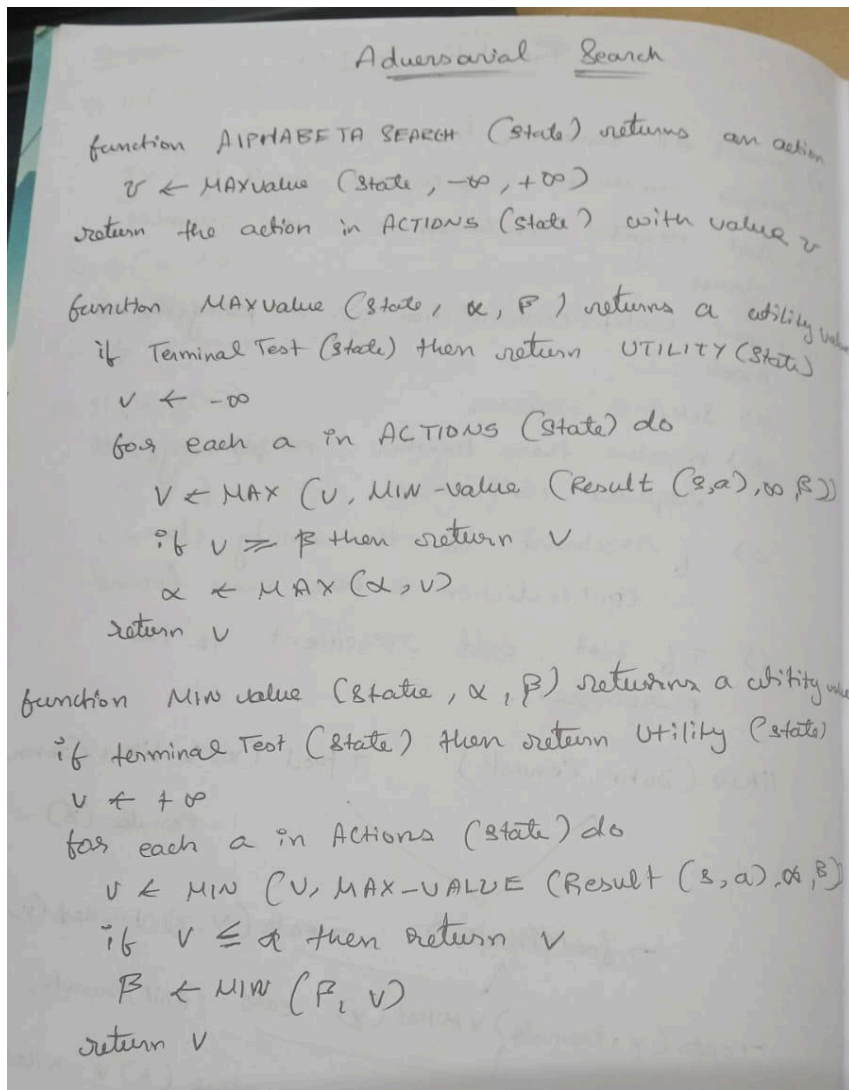 Adversarial Search
function AlPHABETA SEARCH (State) returns an action
v ← MAXvalue (State, -∞, +∞)
return the action in ACTIONS (State) with value v
function MAXvalue (State, α, β) returns a utility value
if Terminal Test (State) then return UTILITY (State)
v ← -∞
for each a in ACTIONS (State) do
V ← MAX (v, MIN-value (Result (s,a), ∞, β))
if v ≥ β then return v
α ← MAX (α, v)
return v
function MIN value (State, α, β) returns a utility value
if terminal Test (State) then return Utility (state)
v ← +∞
for each a in Actions (State) do
v ← MIN (v, MAX-VALUE (Result (s,a), α, β)
if v ≤ α then return v
β ← MIN (β, v)
return v